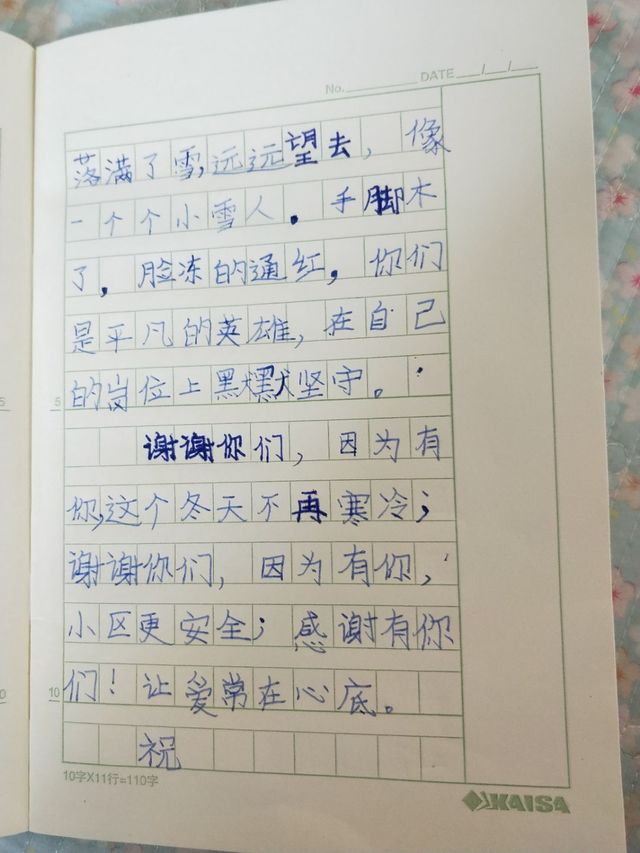 No. DATE / /
落满了雪,远远望去，像
一个个小雪人。手脚木
了，脸冻的通红，你们
是平凡的英雄，在自己
的岗位上黑默坚守。
5
谢谢你们，因为有
你,这个冬天不再寒冷；
谢谢你们，因为有你，
小区更安全；感谢有你
们！让爱常在心底。
10
祝
10字X11行=110字
KAISA